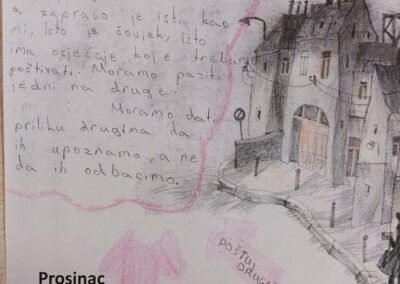 a zapravo je isti kao
mi, isto je čovjek, isto
ima osjećaje koje trebamo
poštivati. Moramo paziti
jedni na druge.
Moramo dati
priliku drugima da
ih upoznamo, a ne
da ih odbacimo.
POŠTUJ
DRUGE
Prosinac